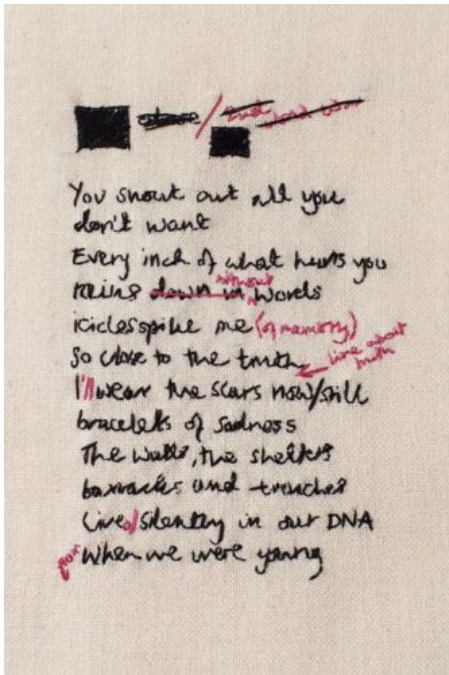 /
You shout out all you
don't want
Every inch of what hurts you
rains down in without words
icicles spike me (of memory)
So close to the truth line about truth
I'll wear the scars now/still
bracelets of sadness
The walls, the shelters
barracks and trenches
Live silently in our DNA
When we were young